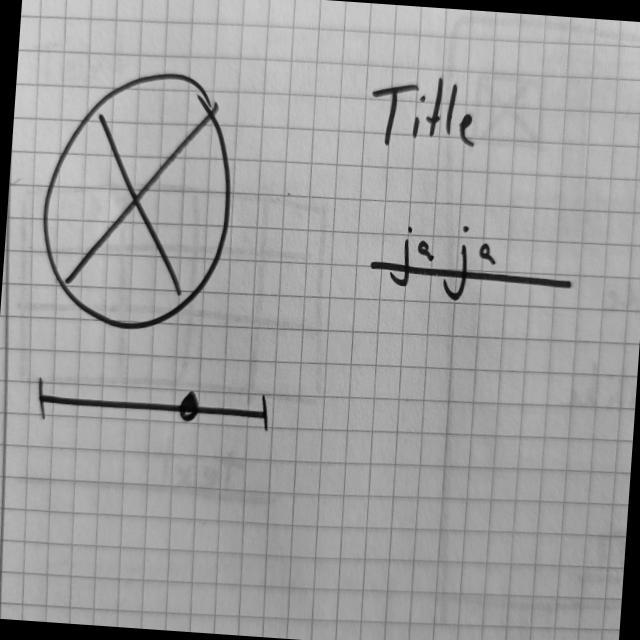 Title
jaja